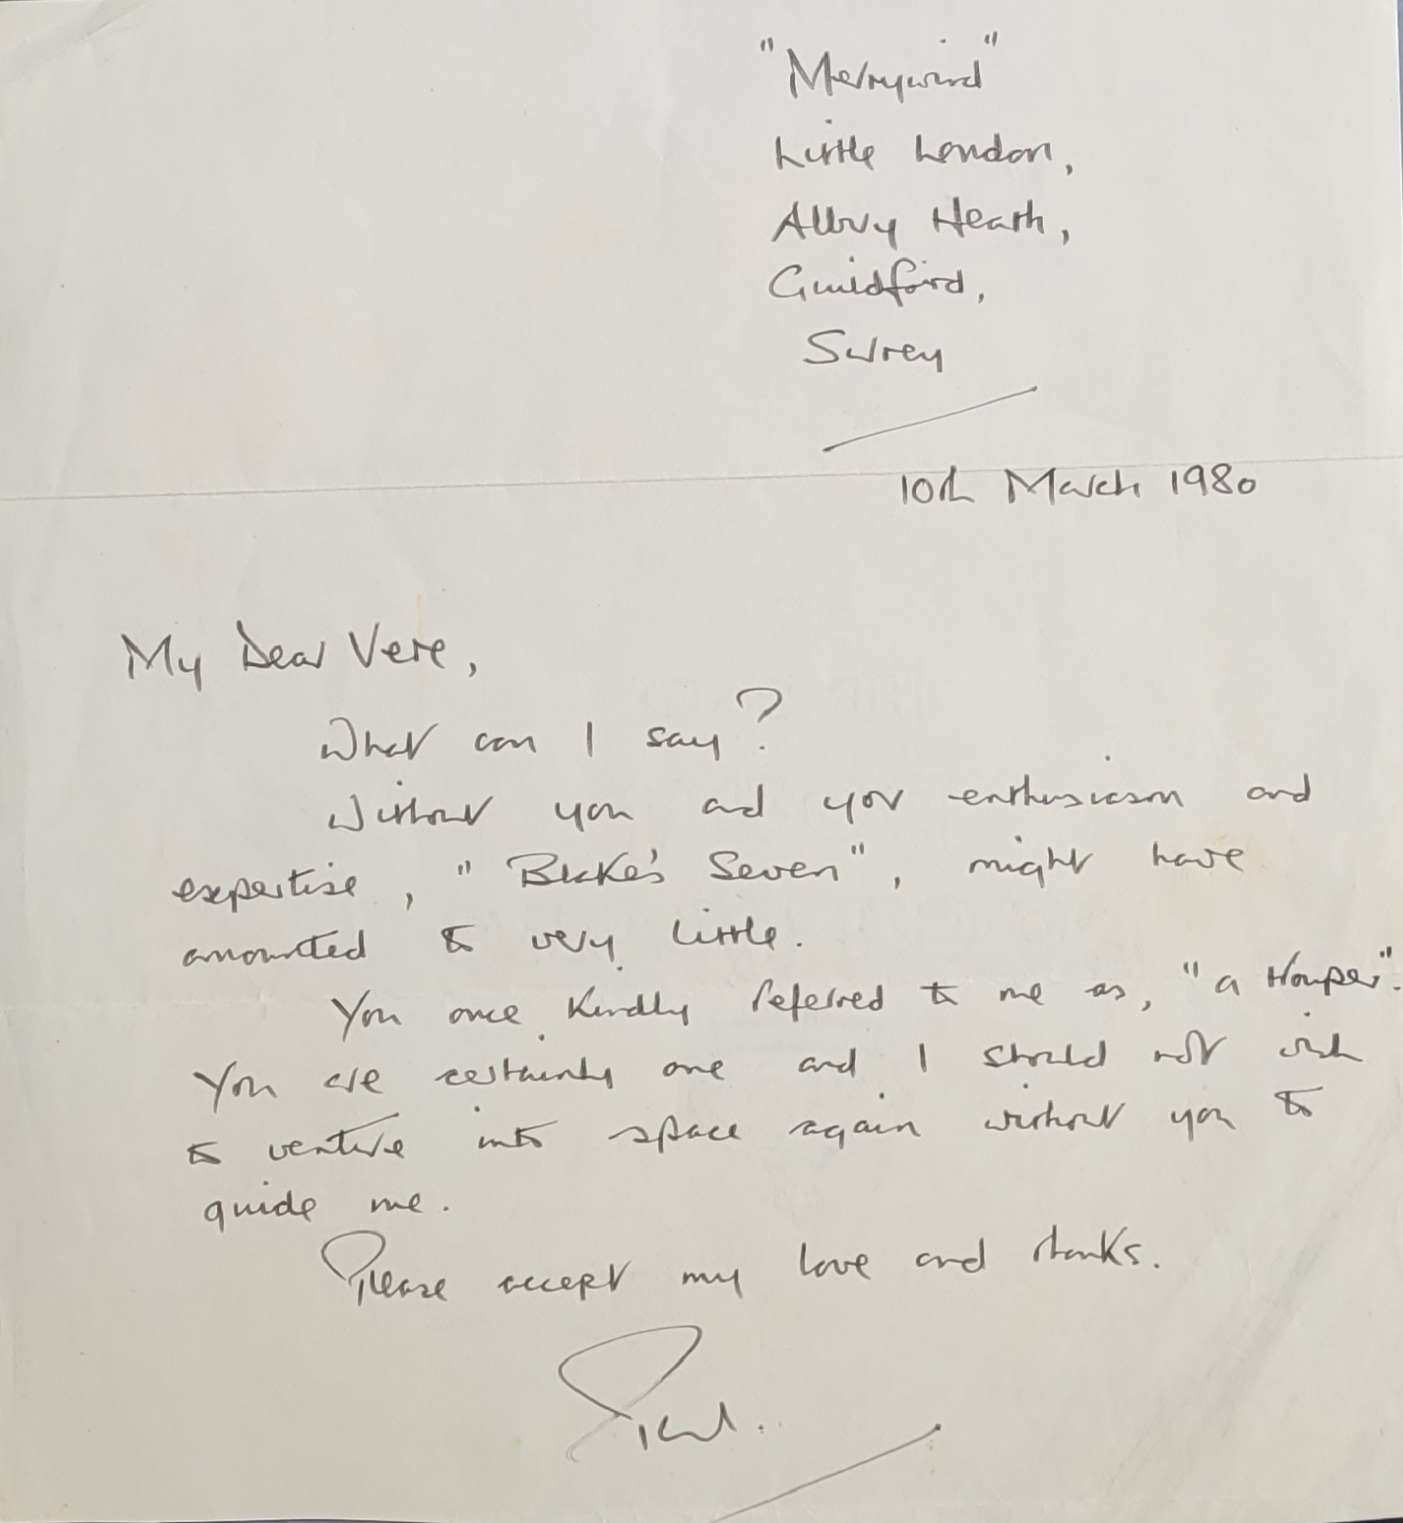 "Merrywind"
Little London,
Albury Heath,
Guildford,
Surrey
10th March 1980
My Dear Vere,
What can I say?
Without you and your enthusiasm and
expertise, "Blake's Seven", might have
amounted to very little.
You once kindly referred to me as, "a trouper".
You are certainly one and I should not wish
to venture into space again without you to
guide me.
Please accept my love and thanks.